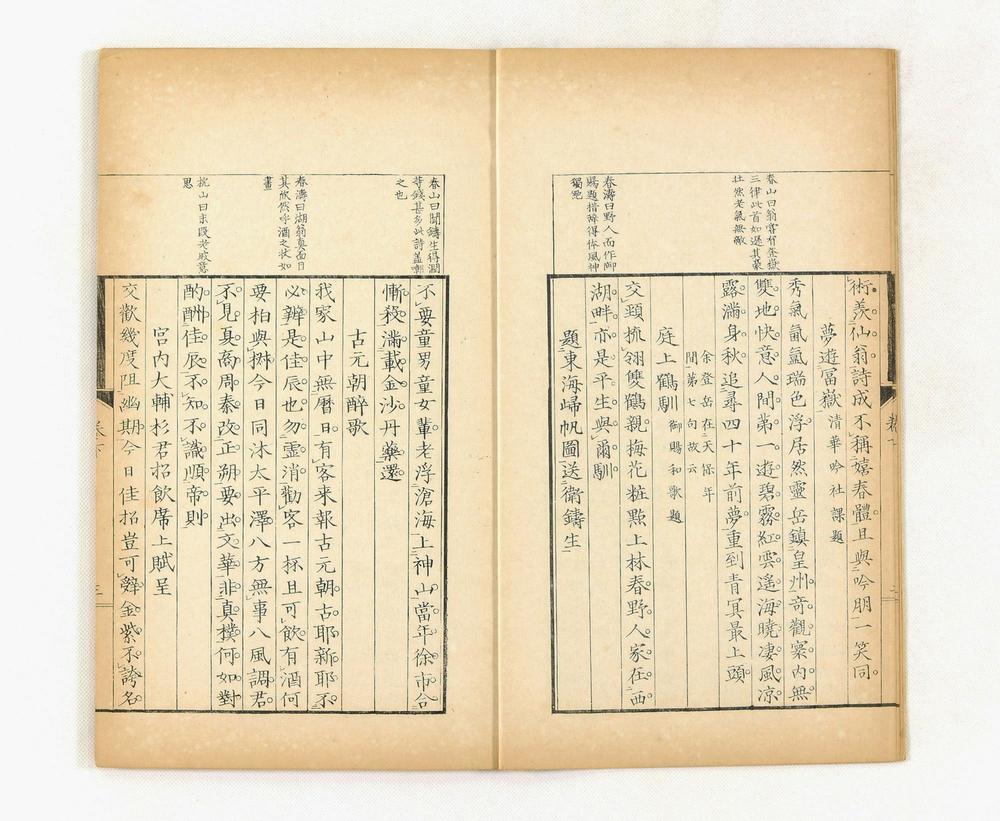 春山曰翁嘗有登嶽
三律此首如遜其豪
壮然老氣無敵
春濤曰野人而作御
賜題措辞得体風神
獨絶
術羨仙翁詩成不稱嬉春體且與吟朋一笑同
夢遊冨嶽清華吟社課題
秀氣氤氳瑞色浮居然靈岳鎮皇州奇觀寰内無
雙地快意人間第一遊碧霧紅雲遥海曉凄風凉
露滿身秋追尋四十年前夢重到青冥最上頭
余登岳在天保年
間第七句故云
庭上鶴馴御賜和歌題
交頸梳翎雙鶴親梅花粧點上林春野人家在西
湖畔亦是平生與爾馴
題東海歸帆圖送衛鑄生
卷下
春山曰聞鑄生得潤
筆錢甚多此詩盖嘲
之也
春濤曰湖翁真面目
其欣然呼酒之状如
畫
枕山曰末段老成意
思
不要童男童女輩老浮滄海上神山當年徐市合
慚殺滿載金沙丹藥還
古元朝醉歌
我家山中無曆日有客来報古元朝古耶新耶不
必辨是佳辰也勿虚消勸客一杯且可飲有酒何
要柏與椒今日同沐太平澤八方無事八風調君
不見夏商周秦改正朔要出文華非真樸何如對
酌酬佳辰不知不識順帝則
宮内大輔杉君招飲席上賦呈
交歡幾度阻幽期今日佳招豈可辭金紫不誇名
卷下
三